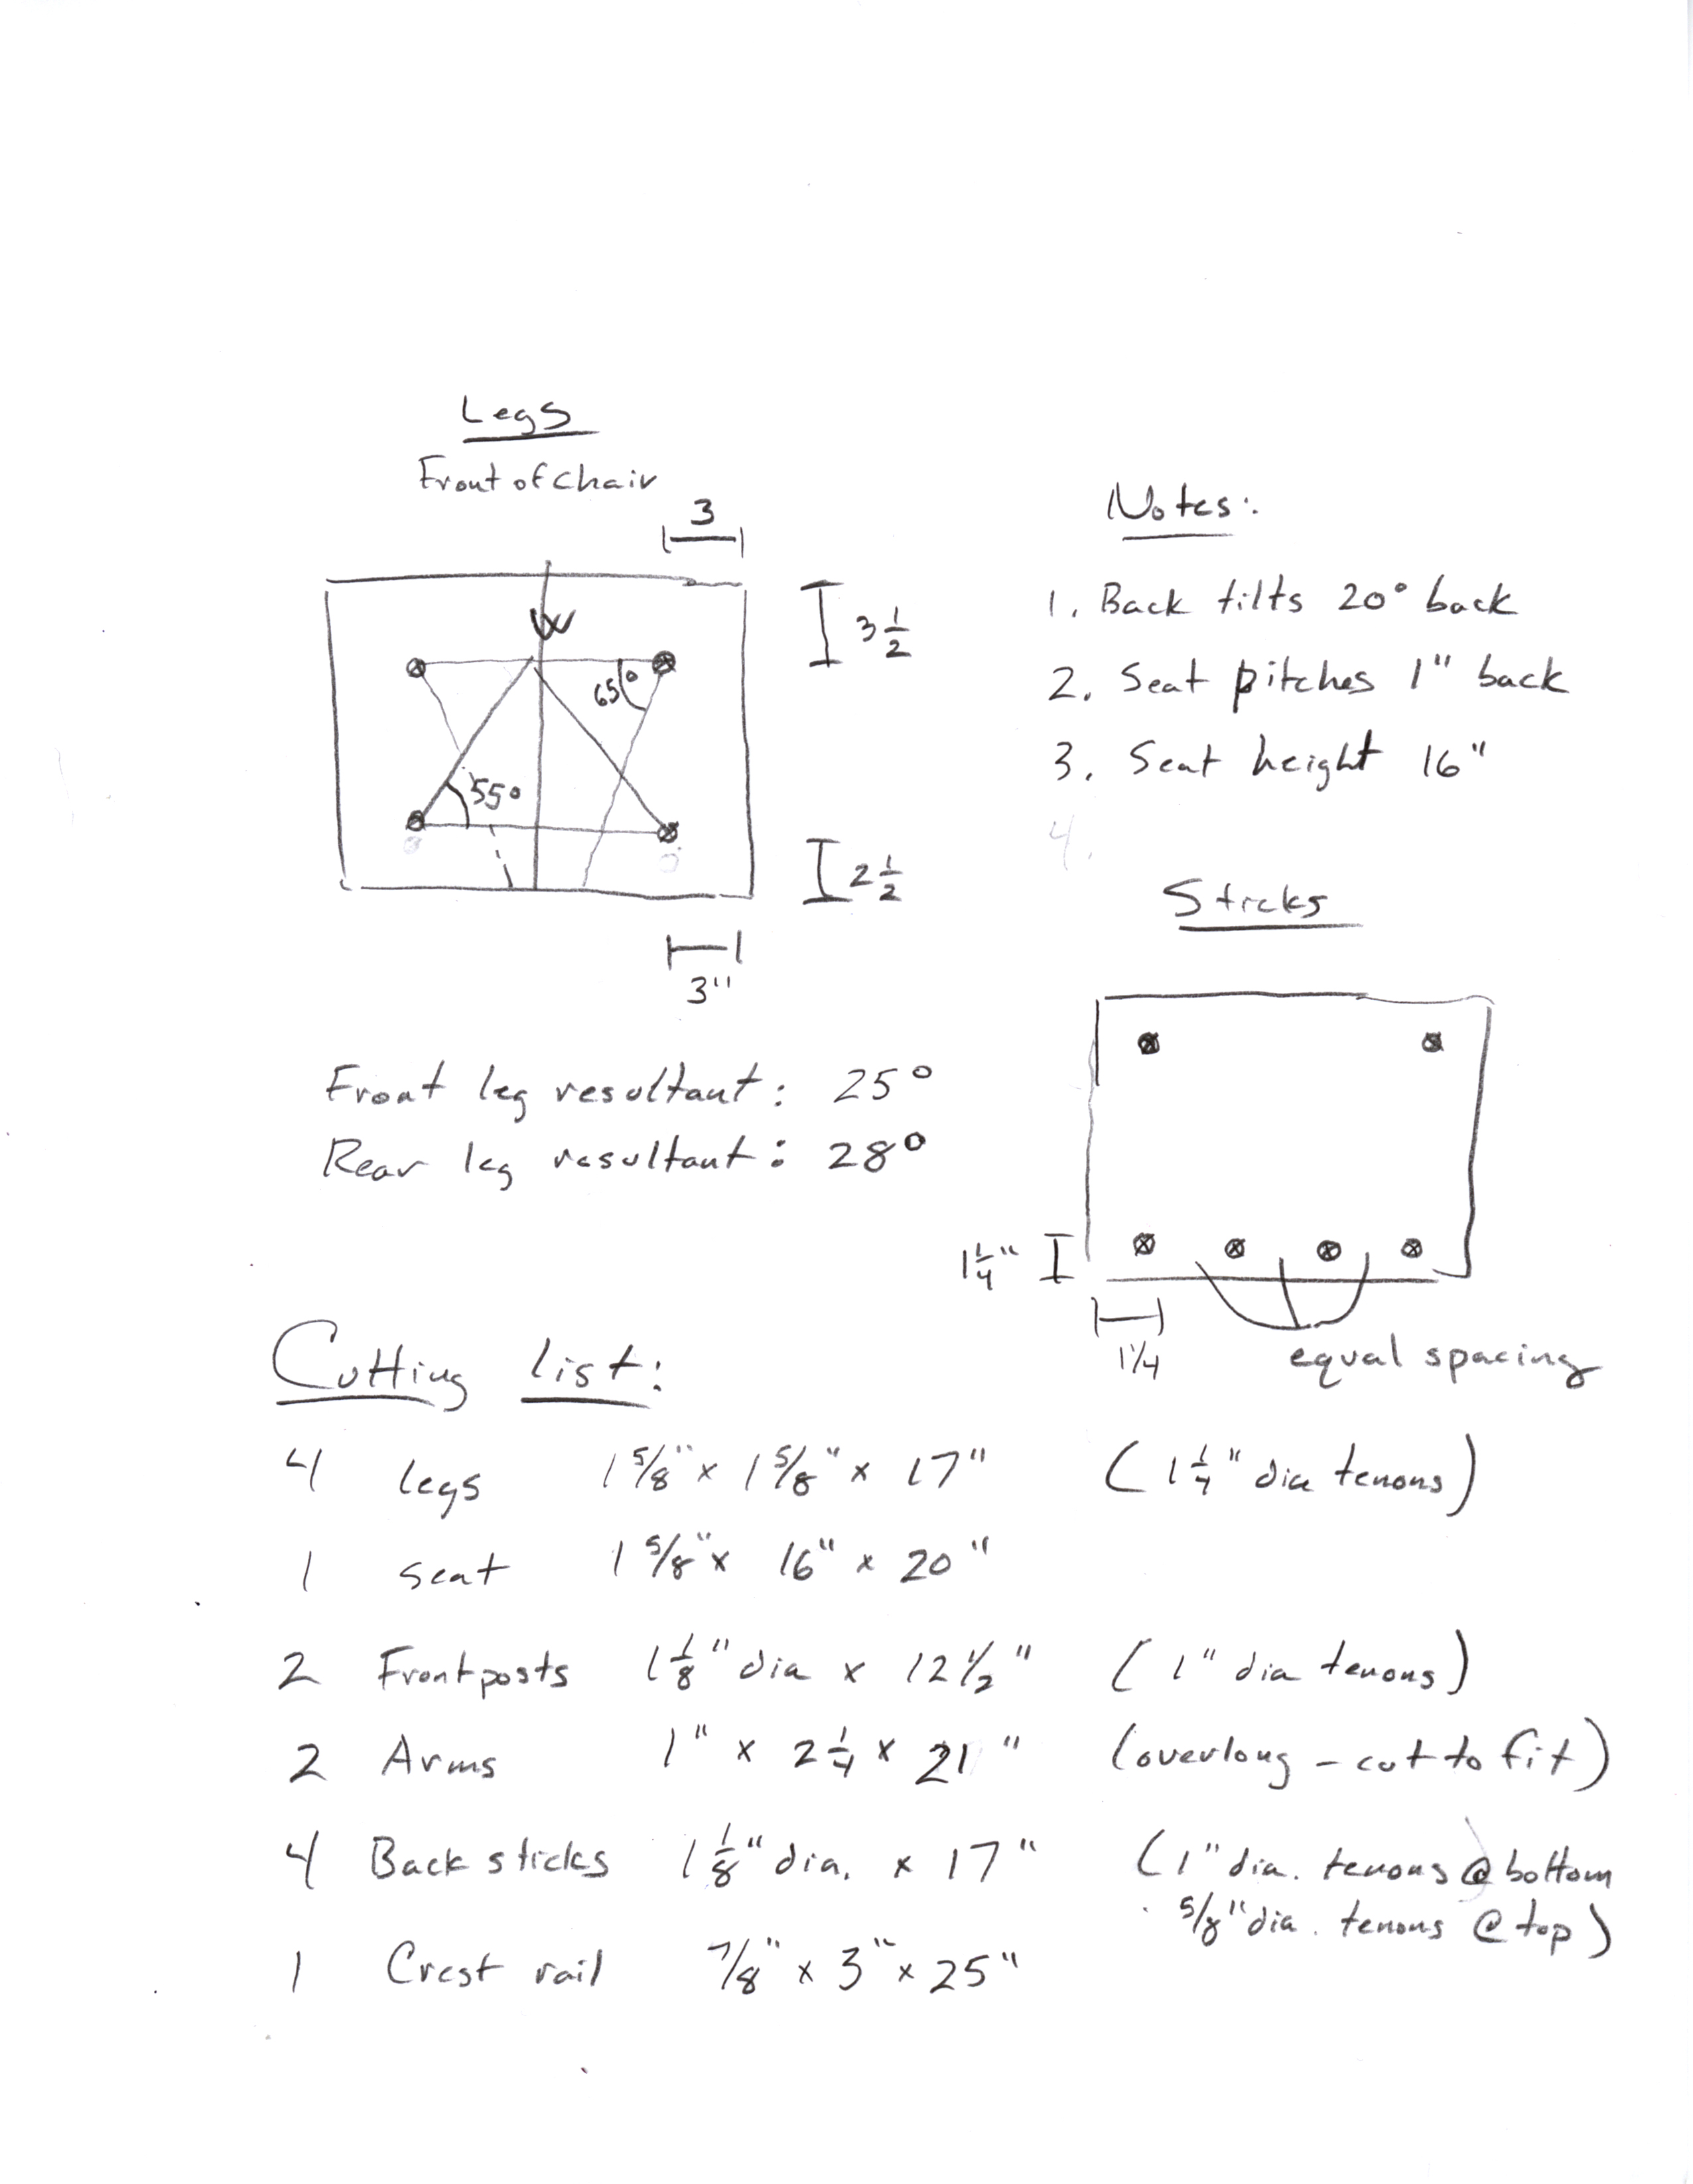 Legs
Front of chair
3
3 1/2
65°
55°
2 1/2
3"
Front leg resultant: 25°
Rear leg resultant: 28°
Notes:
1. Back tilts 20° back
2. Seat pitches 1" back
3. Seat height 16"
4.
Sticks
1 1/4"
1 1/4
equal spacing
Cutting list:
4 legs 1 5/8" x 1 5/8" x 17" (1 1/4" dia tenons)
1 seat 1 5/8" x 16" x 20"
2 Front posts 1 1/8" dia x 12 1/2" (1" dia tenons)
2 Arms 1" x 2 1/4 x 21" (overlong - cut to fit)
4 Back sticks 1 1/8" dia. x 17" (1" dia. tenons @ bottom
5/8" dia. tenons @ top)
1 Crest rail 7/8" x 3" x 25"